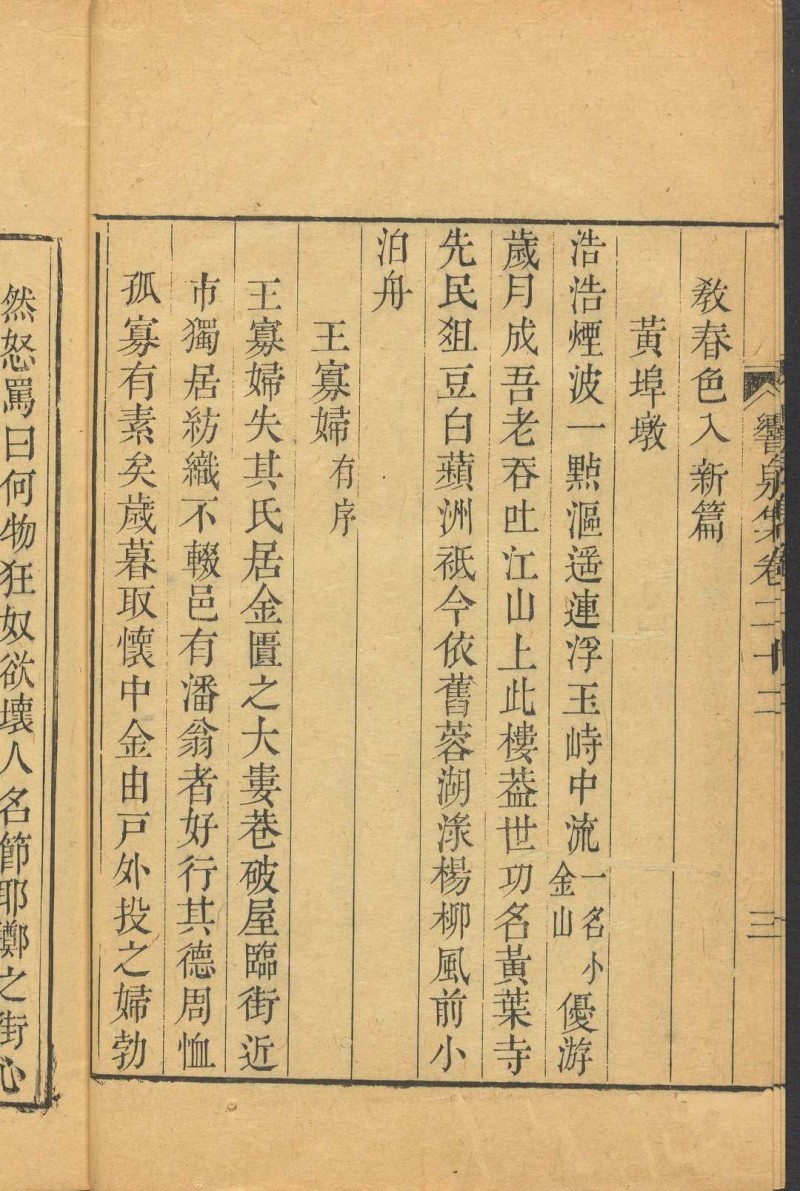 響泉集卷二十二
三
敎春色入新篇
黃埠墩
浩浩煙波一點漚遥連浮玉峙中流一名小金山優游
歲月成吾老吞吐江山上此樓葢世功名黃葉寺
先民俎豆白蘋洲祗今依舊蓉湖淥楊柳風前小
泊舟
王寡婦有序
王寡婦失其氏居金匱之大婁巷破屋臨街近
市獨居紡織不輟邑有潘翁者好行其德周恤
孤寡有素矣歲暮取懷中金由戸外投之婦勃
然怒罵曰何物狂奴欲壞人名節耶擲之街心